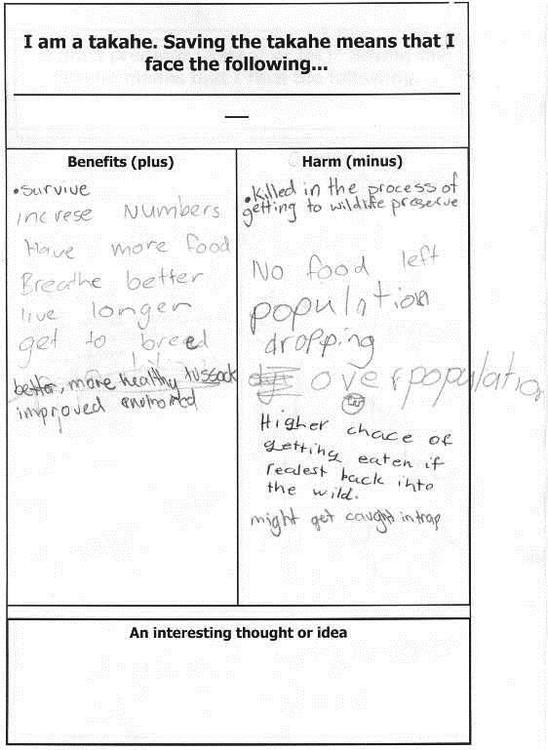 I am a takahe. Saving the takahe means that I
face the following...
—
Benefits (plus)
• survive
increse Numbers
Have more food
Breathe better
live longer
get to breed
better, more healthy tussock
improved
Harm (minus)
• Killed in the process of
getting to wildlife preserve
No food left
population
dropping
overpopulation
Higher chace of
getting eaten if
realest back into
the wild.
might get caught in trap
An interesting thought or idea